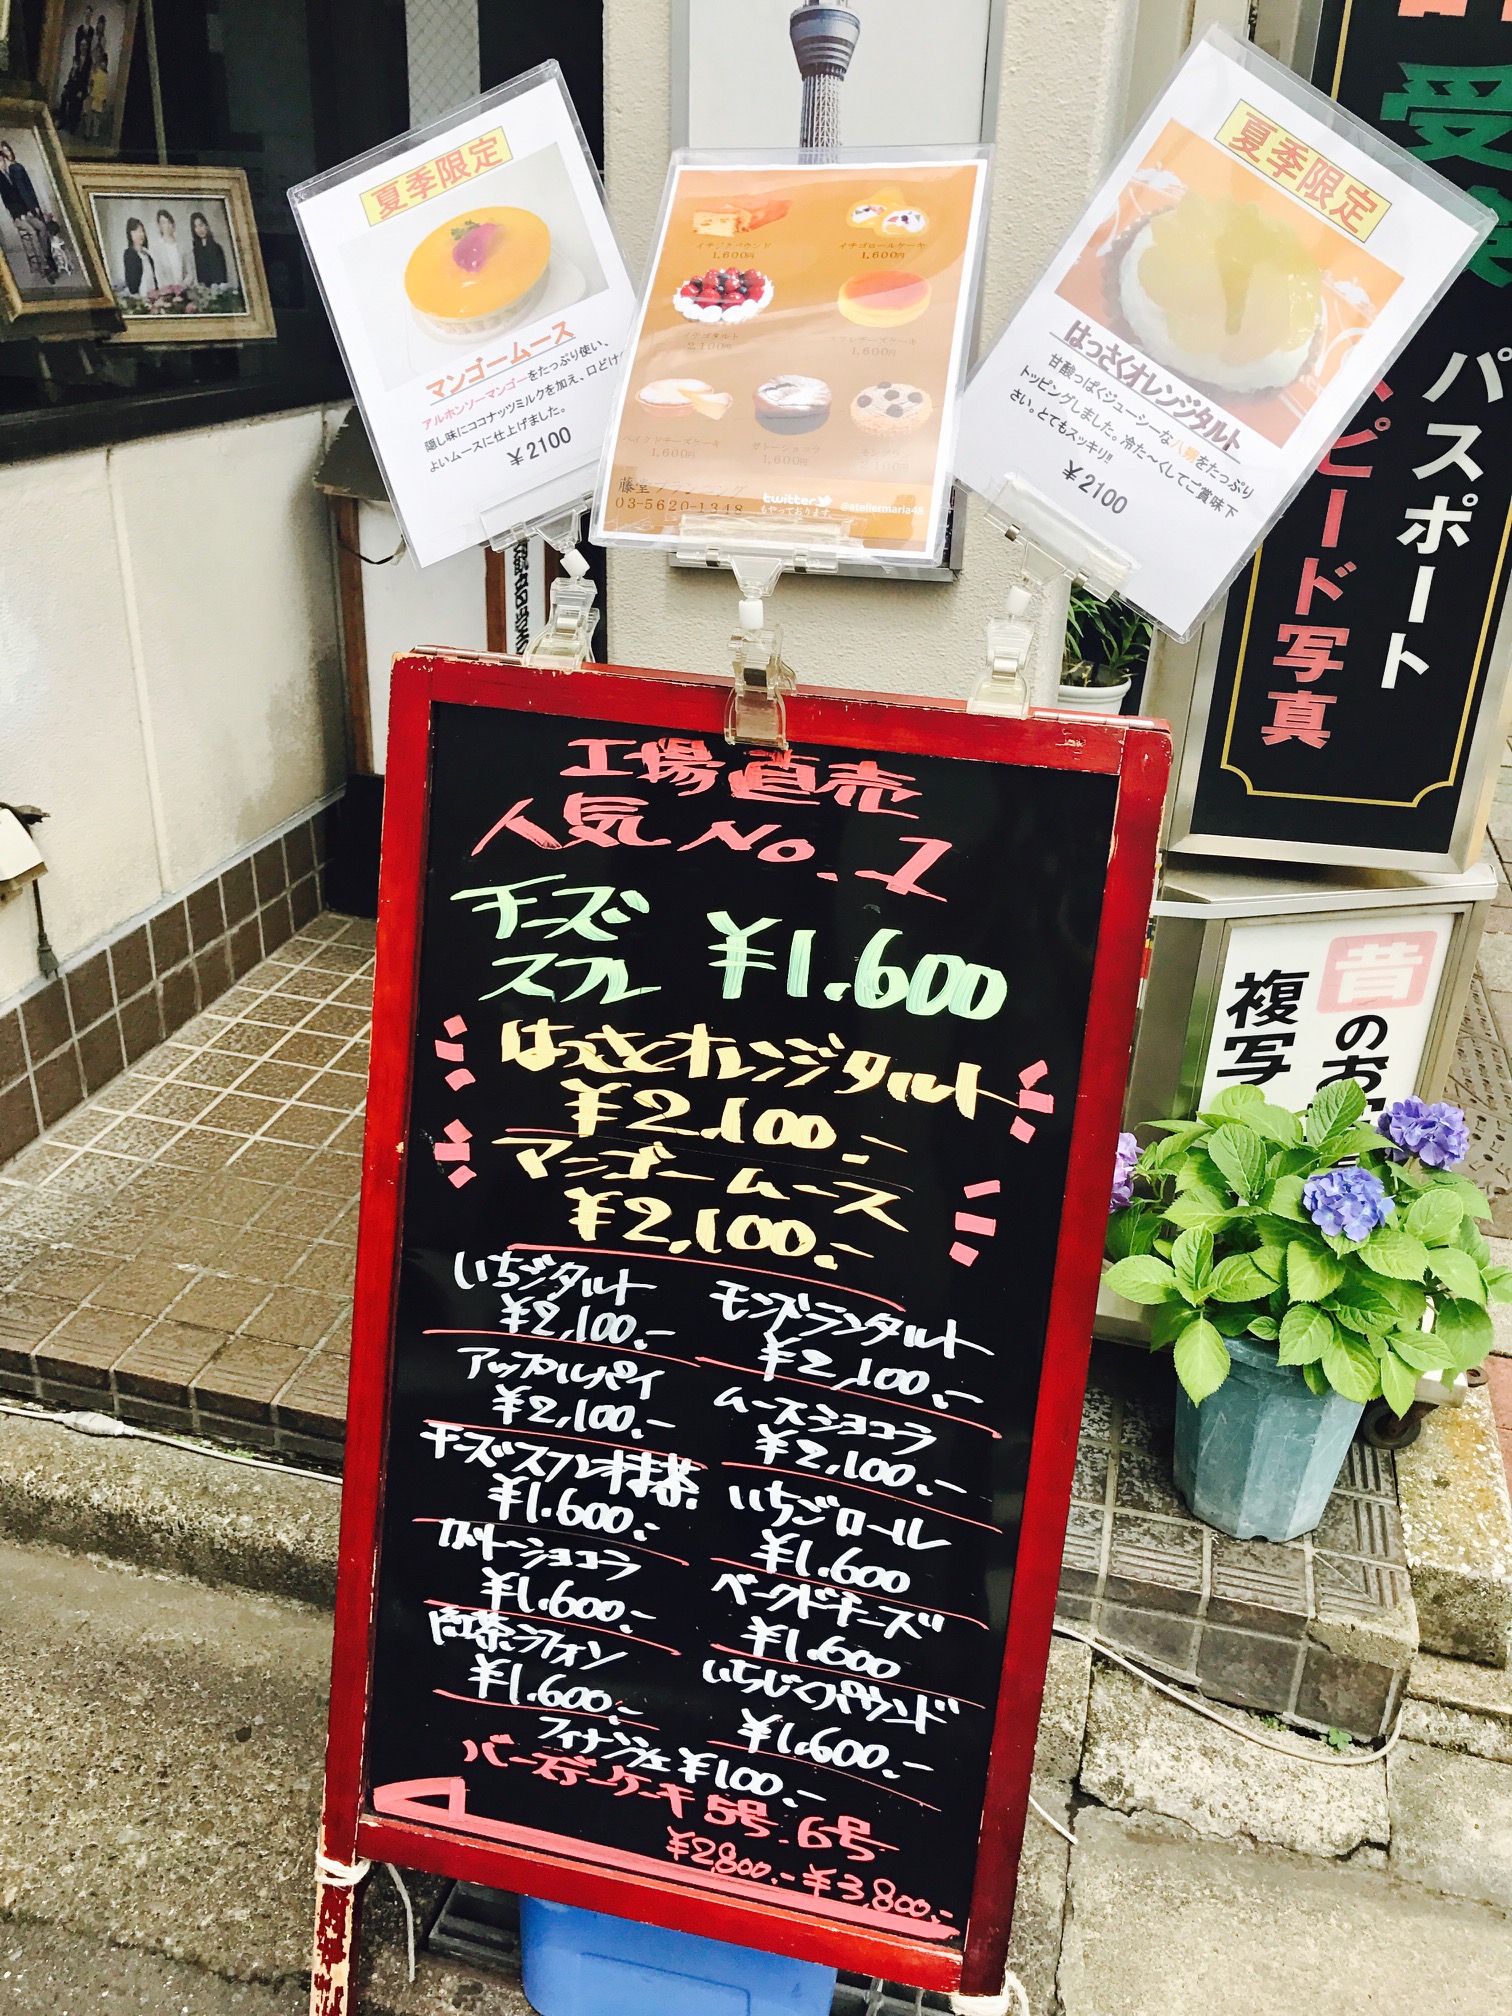 夏季限定
マンゴームース
アルホンソーマンゴーをたっぷり使い、
隠し味にココナッツミルクを加え、口どけの
よいムースに仕上げました。
￥2100
イチジクパウンド
1,600円
イチゴロールケーキ
1,600円
イチゴタルト
2,100円
スフレチーズケーキ
1,600円
ベイクドチーズケーキ
1,600円
ガトーショコラ
1,600円
藤堂プランニング
03-5620-1348
twitter
もやっております。
@ateliermaria48
夏季限定
はっさくオレンジタルト
甘酸っぱくジューシーな八朔をたっぷり
トッピングしました。冷た～くしてご賞味下
さい。とてもスッキリ!!
￥2100
パスポート
スピード写真
昔のお
複写
工場直売
人気No.1
チーズ
スフレ ¥1.600
はっさくオレンジタルト
¥2,100.-
マンゴームース
¥2,100.-
いちごタルト
¥2,100.-
モンブランタルト
¥2,100.-
アップルパイ
¥2,100.-
ムースショコラ
¥2,100.-
チーズスフレ抹茶
¥1.600.-
いちごロール
¥1.600
ガトーショコラ
¥1.600.-
ベークドチーズ
¥1.600
紅茶シフォン
¥1.600.-
いちじくパウンド
¥1.600.-
フィナンジェ ¥100.-
バースデーケーキ 5号 6号
¥2800.- ¥3,800.-